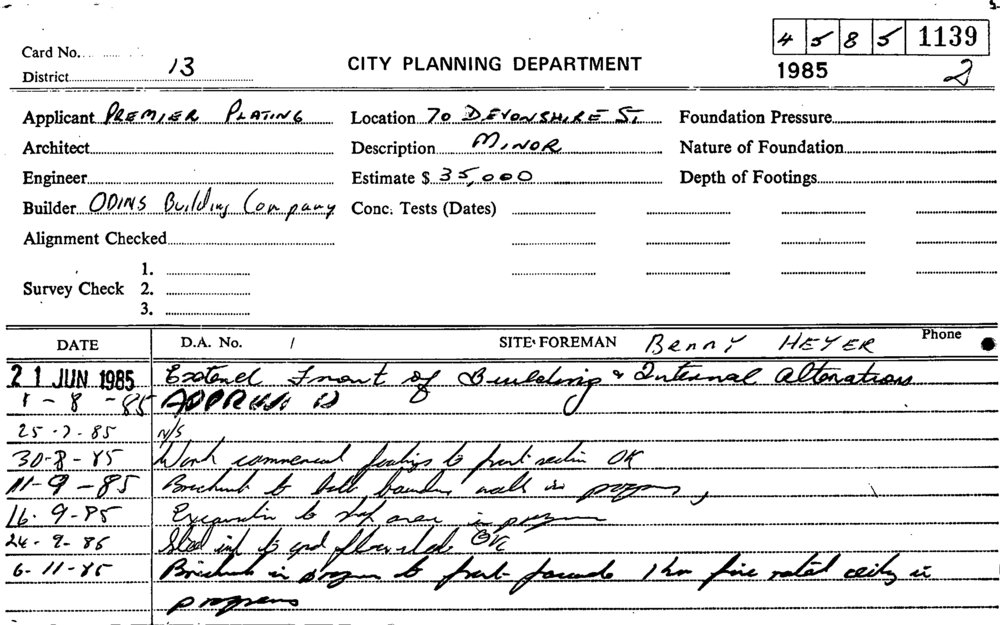 4 5 8 5 1139
Card No.
District 13
CITY PLANNING DEPARTMENT
1985
2
Applicant PREMIER PLATING Location 70 DEVONSHIRE ST. Foundation Pressure
Architect Description MINOR Nature of Foundation
Engineer Estimate $ 35,000 Depth of Footings
Builder ODINS Building Company Conc. Tests (Dates)
Alignment Checked
1.
Survey Check 2.
3.
DATE D.A. No. / SITE FOREMAN BENNY HEYER Phone
21 JUN 1985 Extend Front of Building & Internal Alterations
1-8-85 APPROVED
25-7-85 N/S
30-8-85 Work commenced footings to front section OK
11-9-85 Brickwork to both boundary walls in progress,
16-9-85 Excavation to slab area in progress
24-9-85 Steel inf to grd floor slab OK
6-11-85 Brickwork in progress to front facade 1 hr fire rated ceiling in
progress